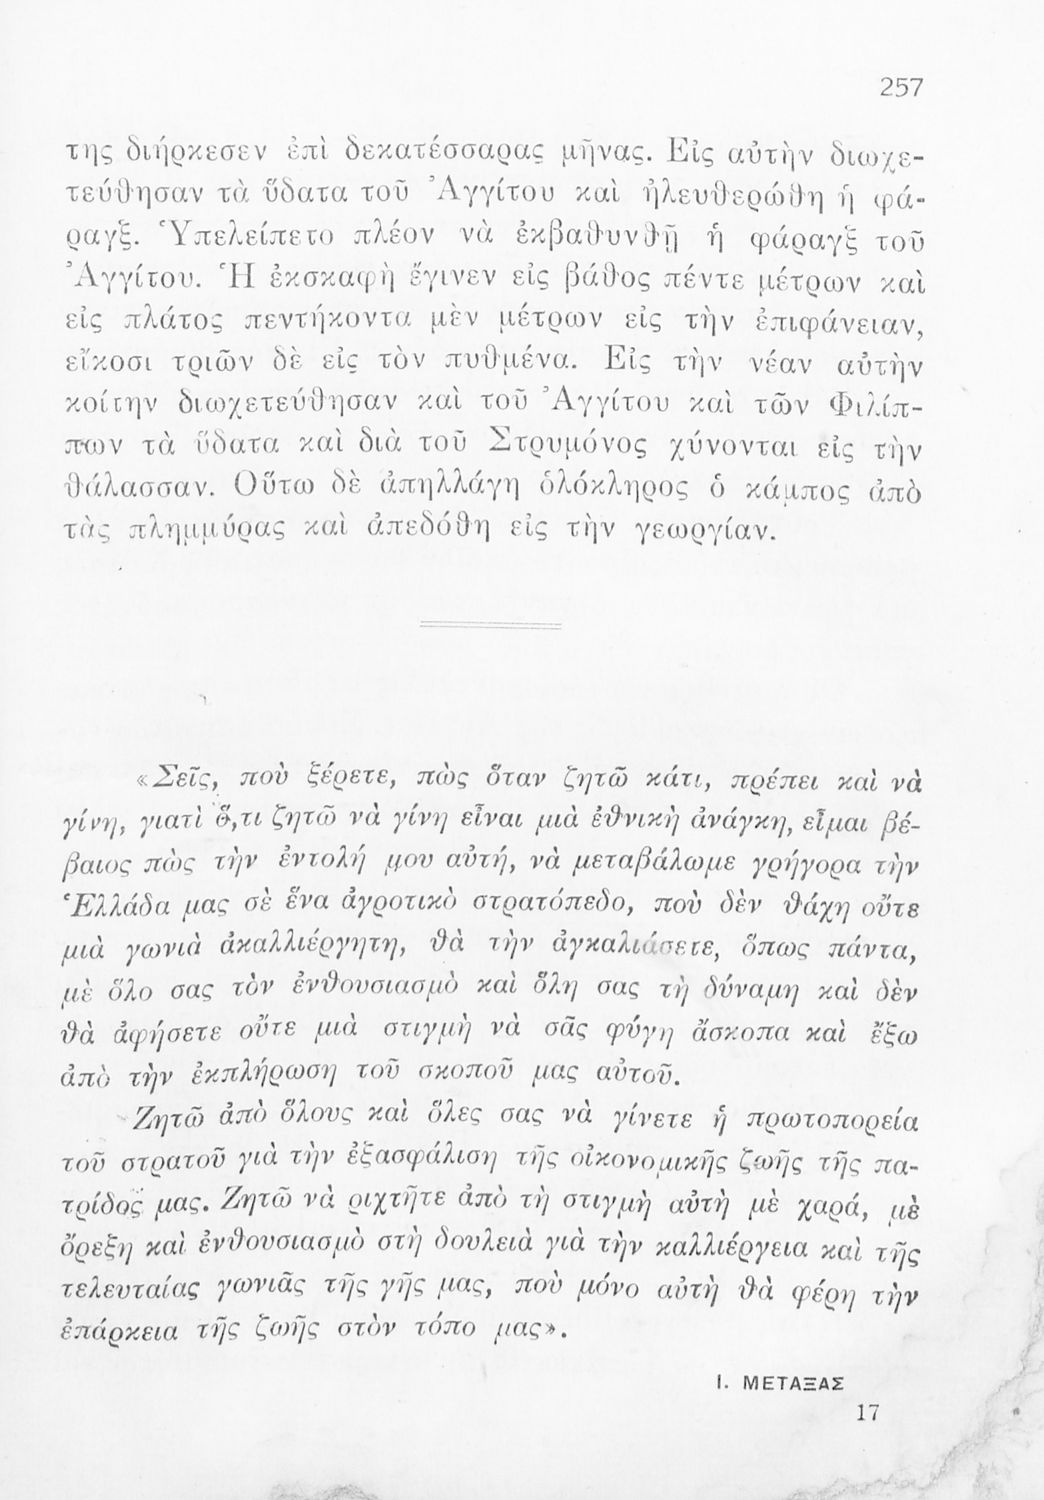 257
της διήρκεσεν ἐπὶ δεκατέσσαρας μῆνας. Εἰς αὐτὴν διωχε-
τεύθησαν τὰ ὕδατα τοῦ Ἀγγίτου καὶ ἠλευθερώθη ἡ φά-
ραγξ. Ὑπελείπετο πλέον νὰ ἐκβαθυνθῇ ἡ φάραγξ τοῦ
Ἀγγίτου. Ἡ ἐκσκαφὴ ἔγινεν εἰς βάθος πέντε μέτρων καὶ
εἰς πλάτος πεντήκοντα μὲν μέτρων εἰς τὴν ἐπιφάνειαν,
εἴκοσι τριῶν δὲ εἰς τὸν πυθμένα. Εἰς τὴν νέαν αὐτὴν
κοίτην διωχετεύθησαν καὶ τοῦ Ἀγγίτου καὶ τῶν Φιλίπ-
πων τὰ ὕδατα καὶ διὰ τοῦ Στρυμόνος χύνονται εἰς τὴν
θάλασσαν. Οὕτω δὲ ἀπηλλάγη ὁλόκληρος ὁ κάμπος ἀπὸ
τὰς πλημμύρας καὶ ἀπεδόθη εἰς τὴν γεωργίαν.
«Σεῖς, ποὺ ξέρετε, πὼς ὅταν ζητῶ κάτι, πρέπει καὶ νὰ
γίνη, γιατὶ ὅ,τι ζητῶ νὰ γίνη εἶναι μιὰ ἐθνικὴ ἀνάγκη, εἶμαι βέ-
βαιος πὼς τὴν ἐντολή μου αὐτή, νὰ μεταβάλωμε γρήγορα τὴν
Ἑλλάδα μας σὲ ἕνα ἀγροτικὸ στρατόπεδο, ποὺ δὲν θάχη οὔτε
μιὰ γωνιὰ ἀκαλλιέργητη, θὰ τὴν ἀγκαλιάσετε, ὅπως πάντα,
μὲ ὅλο σας τὸν ἐνθουσιασμὸ καὶ ὅλη σας τὴ δύναμη καὶ δὲν
θὰ ἀφήσετε οὔτε μιὰ στιγμὴ νὰ σᾶς φύγη ἄσκοπα καὶ ἔξω
ἀπὸ τὴν ἐκπλήρωση τοῦ σκοποῦ μας αὐτοῦ.
Ζητῶ ἀπὸ ὅλους καὶ ὅλες σας νὰ γίνετε ἡ πρωτοπορεία
τοῦ στρατοῦ γιὰ τὴν ἐξασφάλιση τῆς οἰκονομικῆς ζωῆς τῆς πα-
τρίδος μας. Ζητῶ νὰ ριχτῆτε ἀπὸ τὴ στιγμὴ αὐτὴ μὲ χαρά, μὲ
ὄρεξη καὶ ἐνθουσιασμὸ στὴ δουλειὰ γιὰ τὴν καλλιέργεια καὶ τῆς
τελευταίας γωνιᾶς τῆς γῆς μας, ποὺ μόνο αὐτὴ θὰ φέρη τὴν
ἐπάρκεια τῆς ζωῆς στὸν τόπο μας».
Ι. ΜΕΤΑΞΑΣ
17